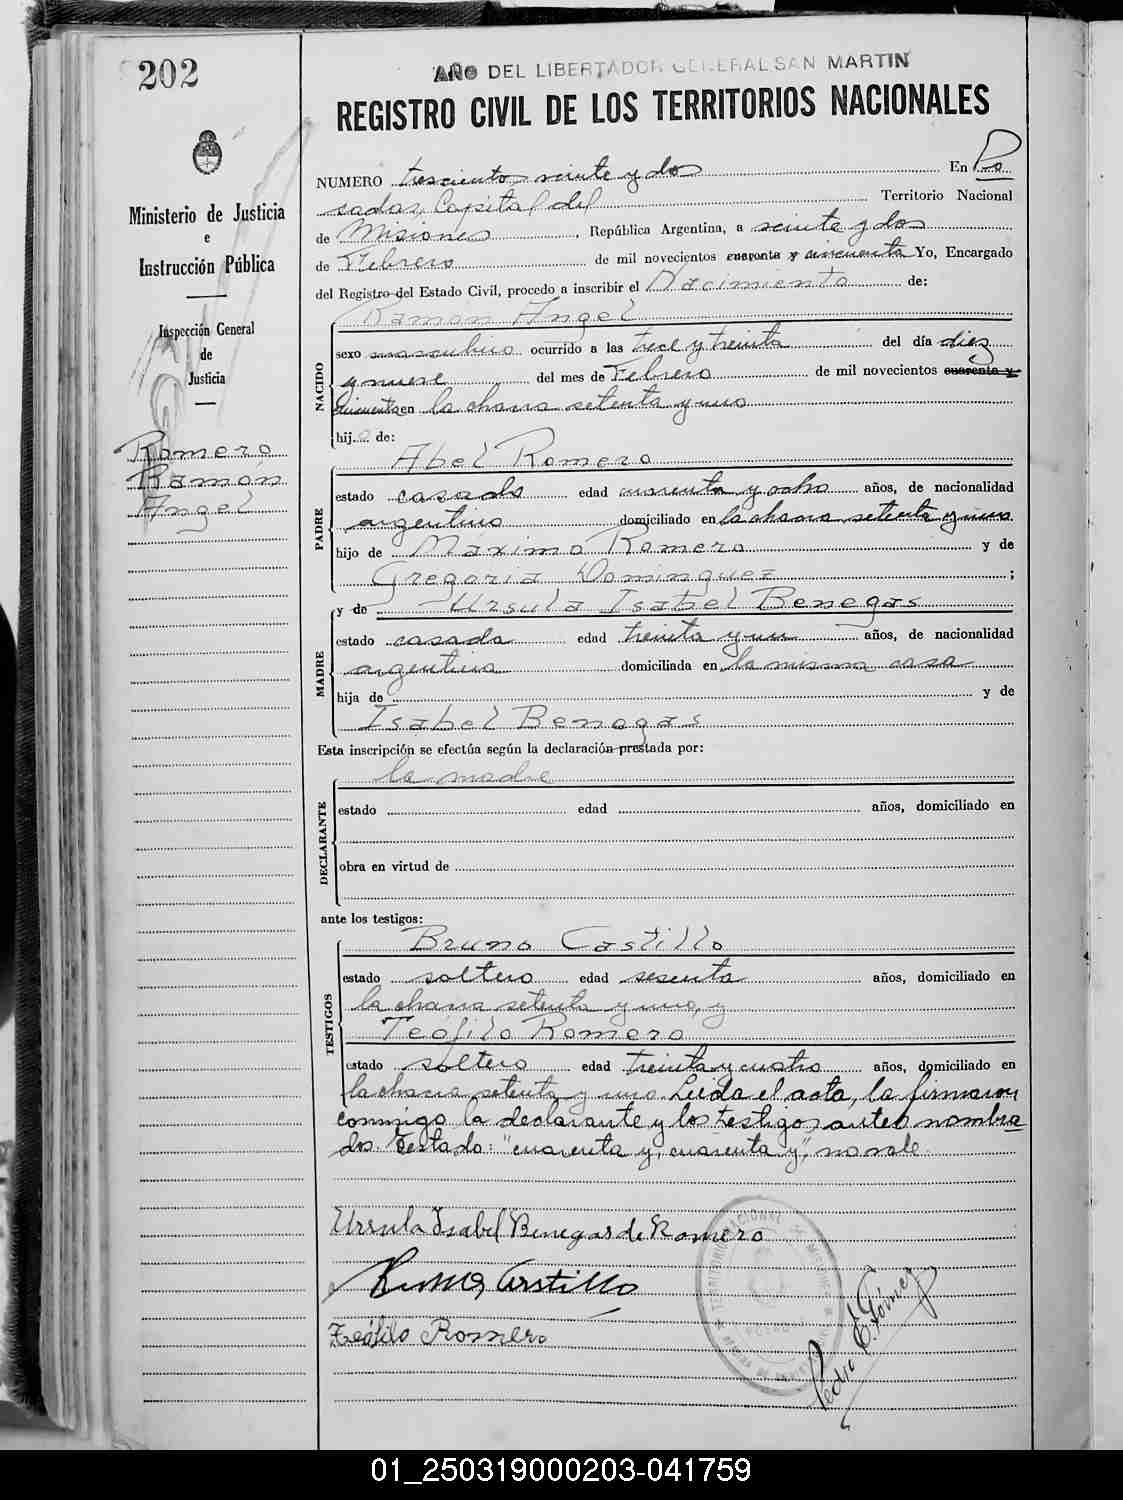 202
AÑO DEL LIBERTADOR GENERAL SAN MARTIN
REGISTRO CIVIL DE LOS TERRITORIOS NACIONALES
Ministerio de Justicia
e
Instrucción Pública
Inspección General
de
Justicia
Romero
Ramón
Angel
NUMERO trescientos veinte y dos En Po
sadas, Capital del Territorio Nacional
de Misiones, República Argentina, a veinte y dos
de Febrero de mil novecientos cuarenta y cincuenta Yo, Encargado
del Registro del Estado Civil, procedo a inscribir el Nacimiento de:
Ramon Angel
NACIDO
sexo masculino ocurrido a las trece y treinta del día diez
y nueve del mes de Febrero de mil novecientos cuarenta y
cincuenta en la chacra setenta y uno
hijo de:
Abel Romero
PADRE
estado casado edad cuarenta y ocho años, de nacionalidad
argentino domiciliado en la chacra setenta y uno
hijo de Máximo Romero y de
Gregoria Dominguez ;
y de Ursula Isabel Benegas
MADRE
estado casada edad treinta y un años, de nacionalidad
argentina domiciliada en la misma casa
hija de y de
Isabel Benegas
Esta inscripción se efectúa según la declaración prestada por:
la madre
DECLARANTE
estado edad años, domiciliado en
obra en virtud de
ante los testigos:
Bruno Castillo
TESTIGOS
estado soltero edad sesenta años, domiciliado en
la chacra setenta y uno, y
Teofilo Romero
estado soltero edad treinta y cuatro años, domiciliado en
la chacra setenta y uno. Leida el acta, la firmaron
conmigo la declarante y los testigos antes nombra
dos. Testado: "cuarenta y, cuarenta y", no vale.
Ursula Isabel Benegas de Romero
Bruno Castillo
Teófilo Romero
Pedro E. Gómez
TERRITORIO NACIONAL DE MISIONES
POSADAS
01_250319000203-041759